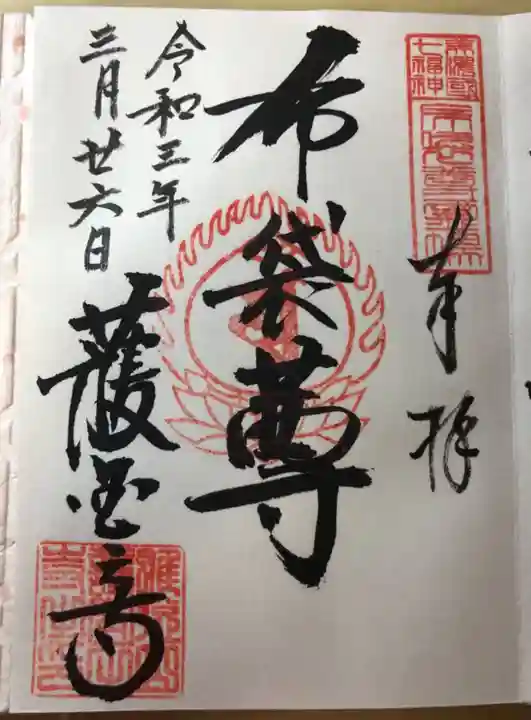 美濃国
七福神
奉拝
布袋尊
令和三年
三月廿六日
護国寺